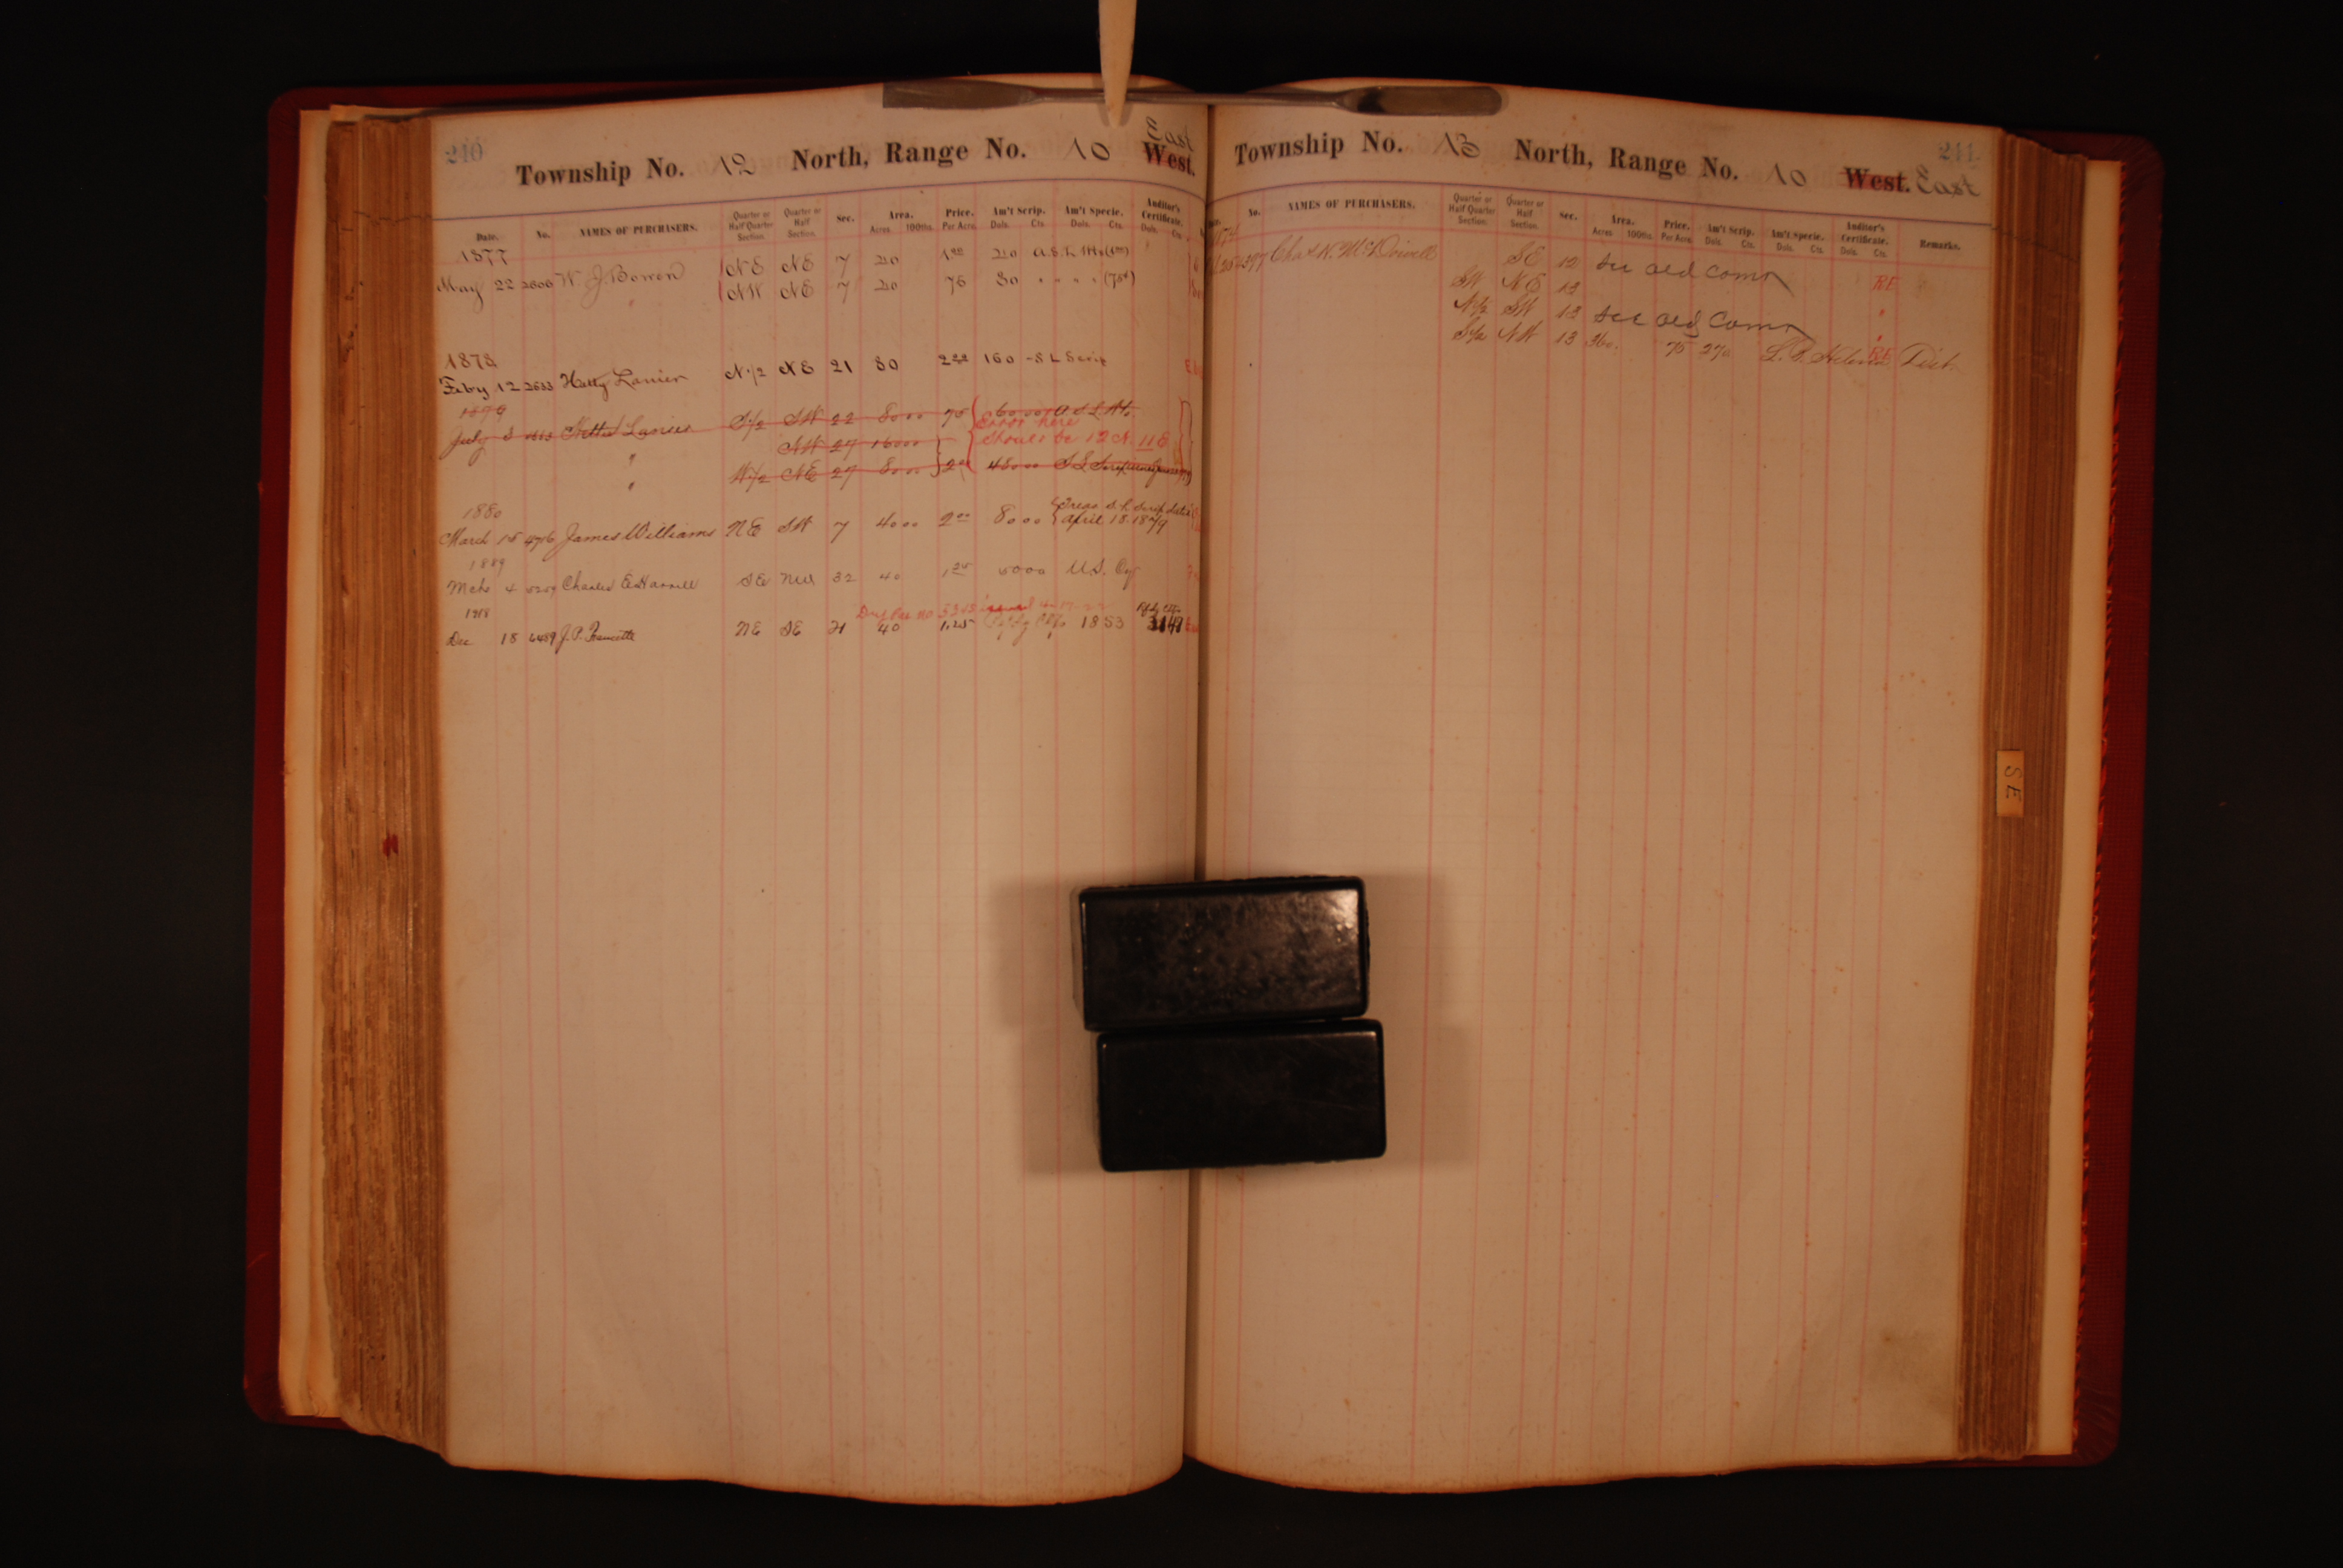 240
East
Township No. 12 North, Range No. 10 West.
Date. No. NAMES OF PURCHASERS. Quarter or Half Quarter Section. Quarter or Half Section. Sec. Area. Acres 100ths. Price. Per Acre. Am't Scrip. Dols. Cts. Am't Specie. Dols. Cts. Auditor's Certificate. Dols. Cts.
1877
May 22 2606 W. J. Bowen NE NE 7 20
NW NE 7 20 75 30 " " " "
Feby 12 2633 Hatty Lanier N 1/2 NE 21 80 2 00 160 - S L Scrip
1879
July 8 Nettie Lanier S 1/2 SW 22 80 00 75 60 00
Error here
" NW 27 160 00 Should be 12 N. 11 E
" W 1/2 NE 27 80 00 2 00 480 00
1880
March 15 4716 James Williams NE SW 7 40 00 2 00 80 00
April 18. 1879
1889
Mch 4 5259 Charles E Harrell SE NW 32 40 1 25 50 00 U.S. Cy
1918
Dec 18 6489 J. P. NE SE 21 40 1.25 1853
241
Township No. 13 North, Range No. 10 West. East
No. NAMES OF PURCHASERS. Quarter or Half Quarter Section. Quarter or Half Section. Sec. Area. Acres 100ths. Price. Per Acre. Am't Scrip. Dols. Cts. Am't Specie. Dols. Cts. Auditor's Certificate. Dols. Cts. Remarks.
SE 12 See old
SW NE 13 RE
N 1/2 SW 13 See old "
S 1/2 NW 13 360. 75 270 Helena Dist
S E